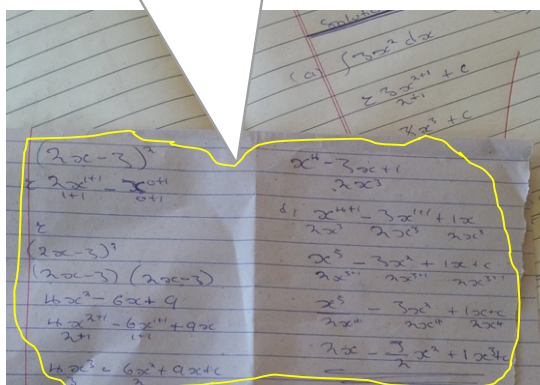 Solution
(a) ∫3x² dx
= 3x²⁺¹/2+1 + c
3/3x³ + c
(2x-3)²
= 2x¹⁺¹/1+1 - 3x⁰⁺¹/0+1
=
(2x-3)²
(2x-3) (2x-3)
4x² - 6x + 9
4x²⁺¹/2+1 - 6x¹⁺¹/1+1 + 9x
4x³/3 - 6x²/2 + 9x+c
x⁴ - 3x + 1
2x³
x⁴⁺¹/2x³ - 3x¹⁺¹/2x³ + 1x/2x³
x⁵/2x³⁺¹ - 3x²/2x³⁺¹ + 1x+c/2x³⁺¹
x⁵/2x⁴ - 3x²/2x⁴ + 1x+c/2x⁴
2x - 3/2 x² + 1x³+c